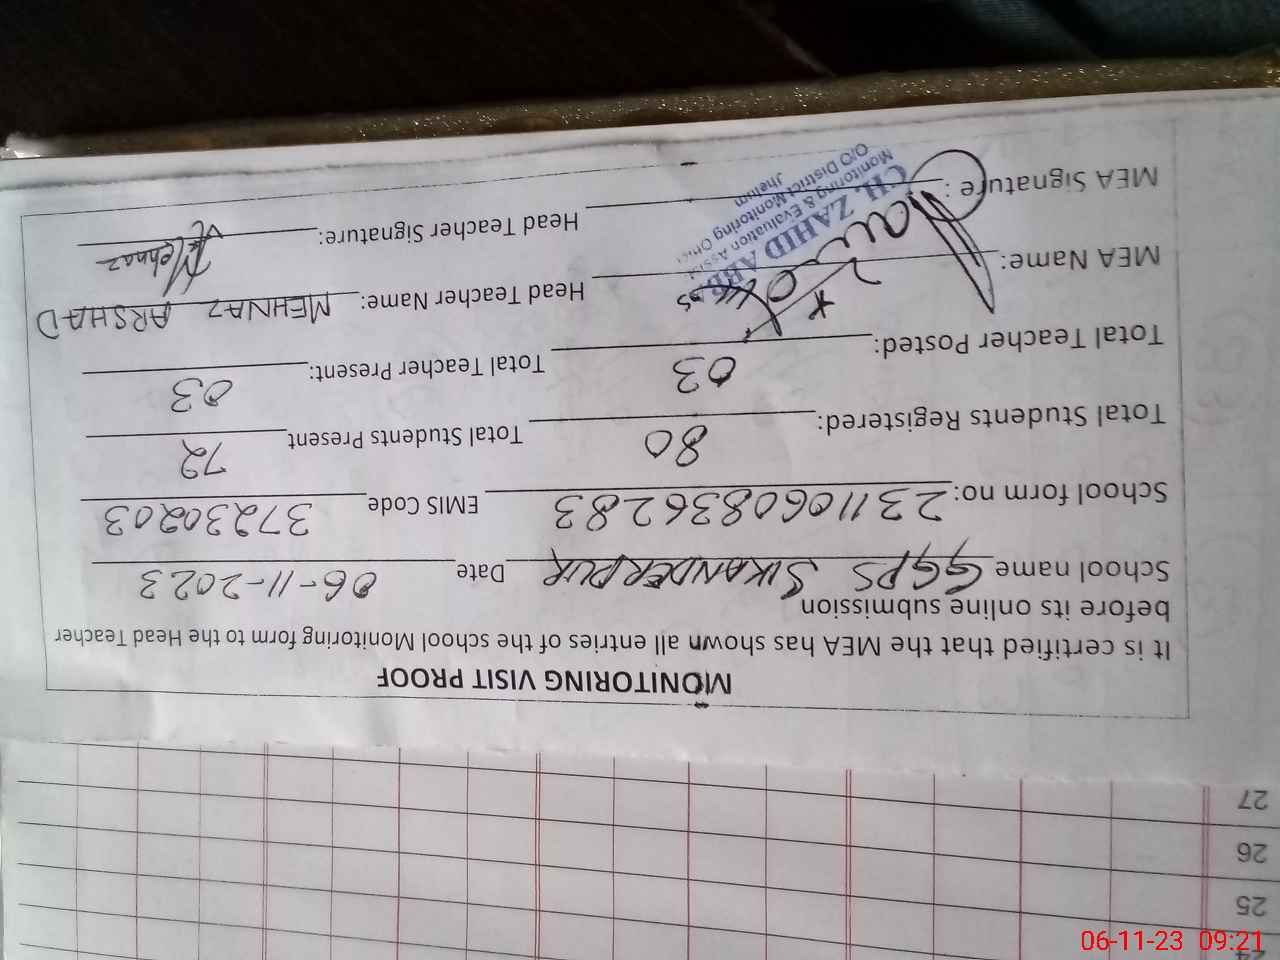 MONITORING VISIT PROOF
It is certified that the MEA has shown all entries of the school Monitoring form to the Head Teacher
before its online submission
School name GGPS SIKANDERPUR Date 06-11-2023
School form no: 2311060836283 EMIS Code 37230203
Total Students Registered: 80 Total Students Present 72
Total Teacher Posted: 03 Total Teacher Present: 03
MEA Name: Head Teacher Name: MEHNAZ ARSHAD
MEA Signature: Head Teacher Signature: Mehnaz
CH. ZAHID
Monitoring & Evaluation
O/O District Monitoring
Jhelum
27
26
25
24
06-11-23 09:21